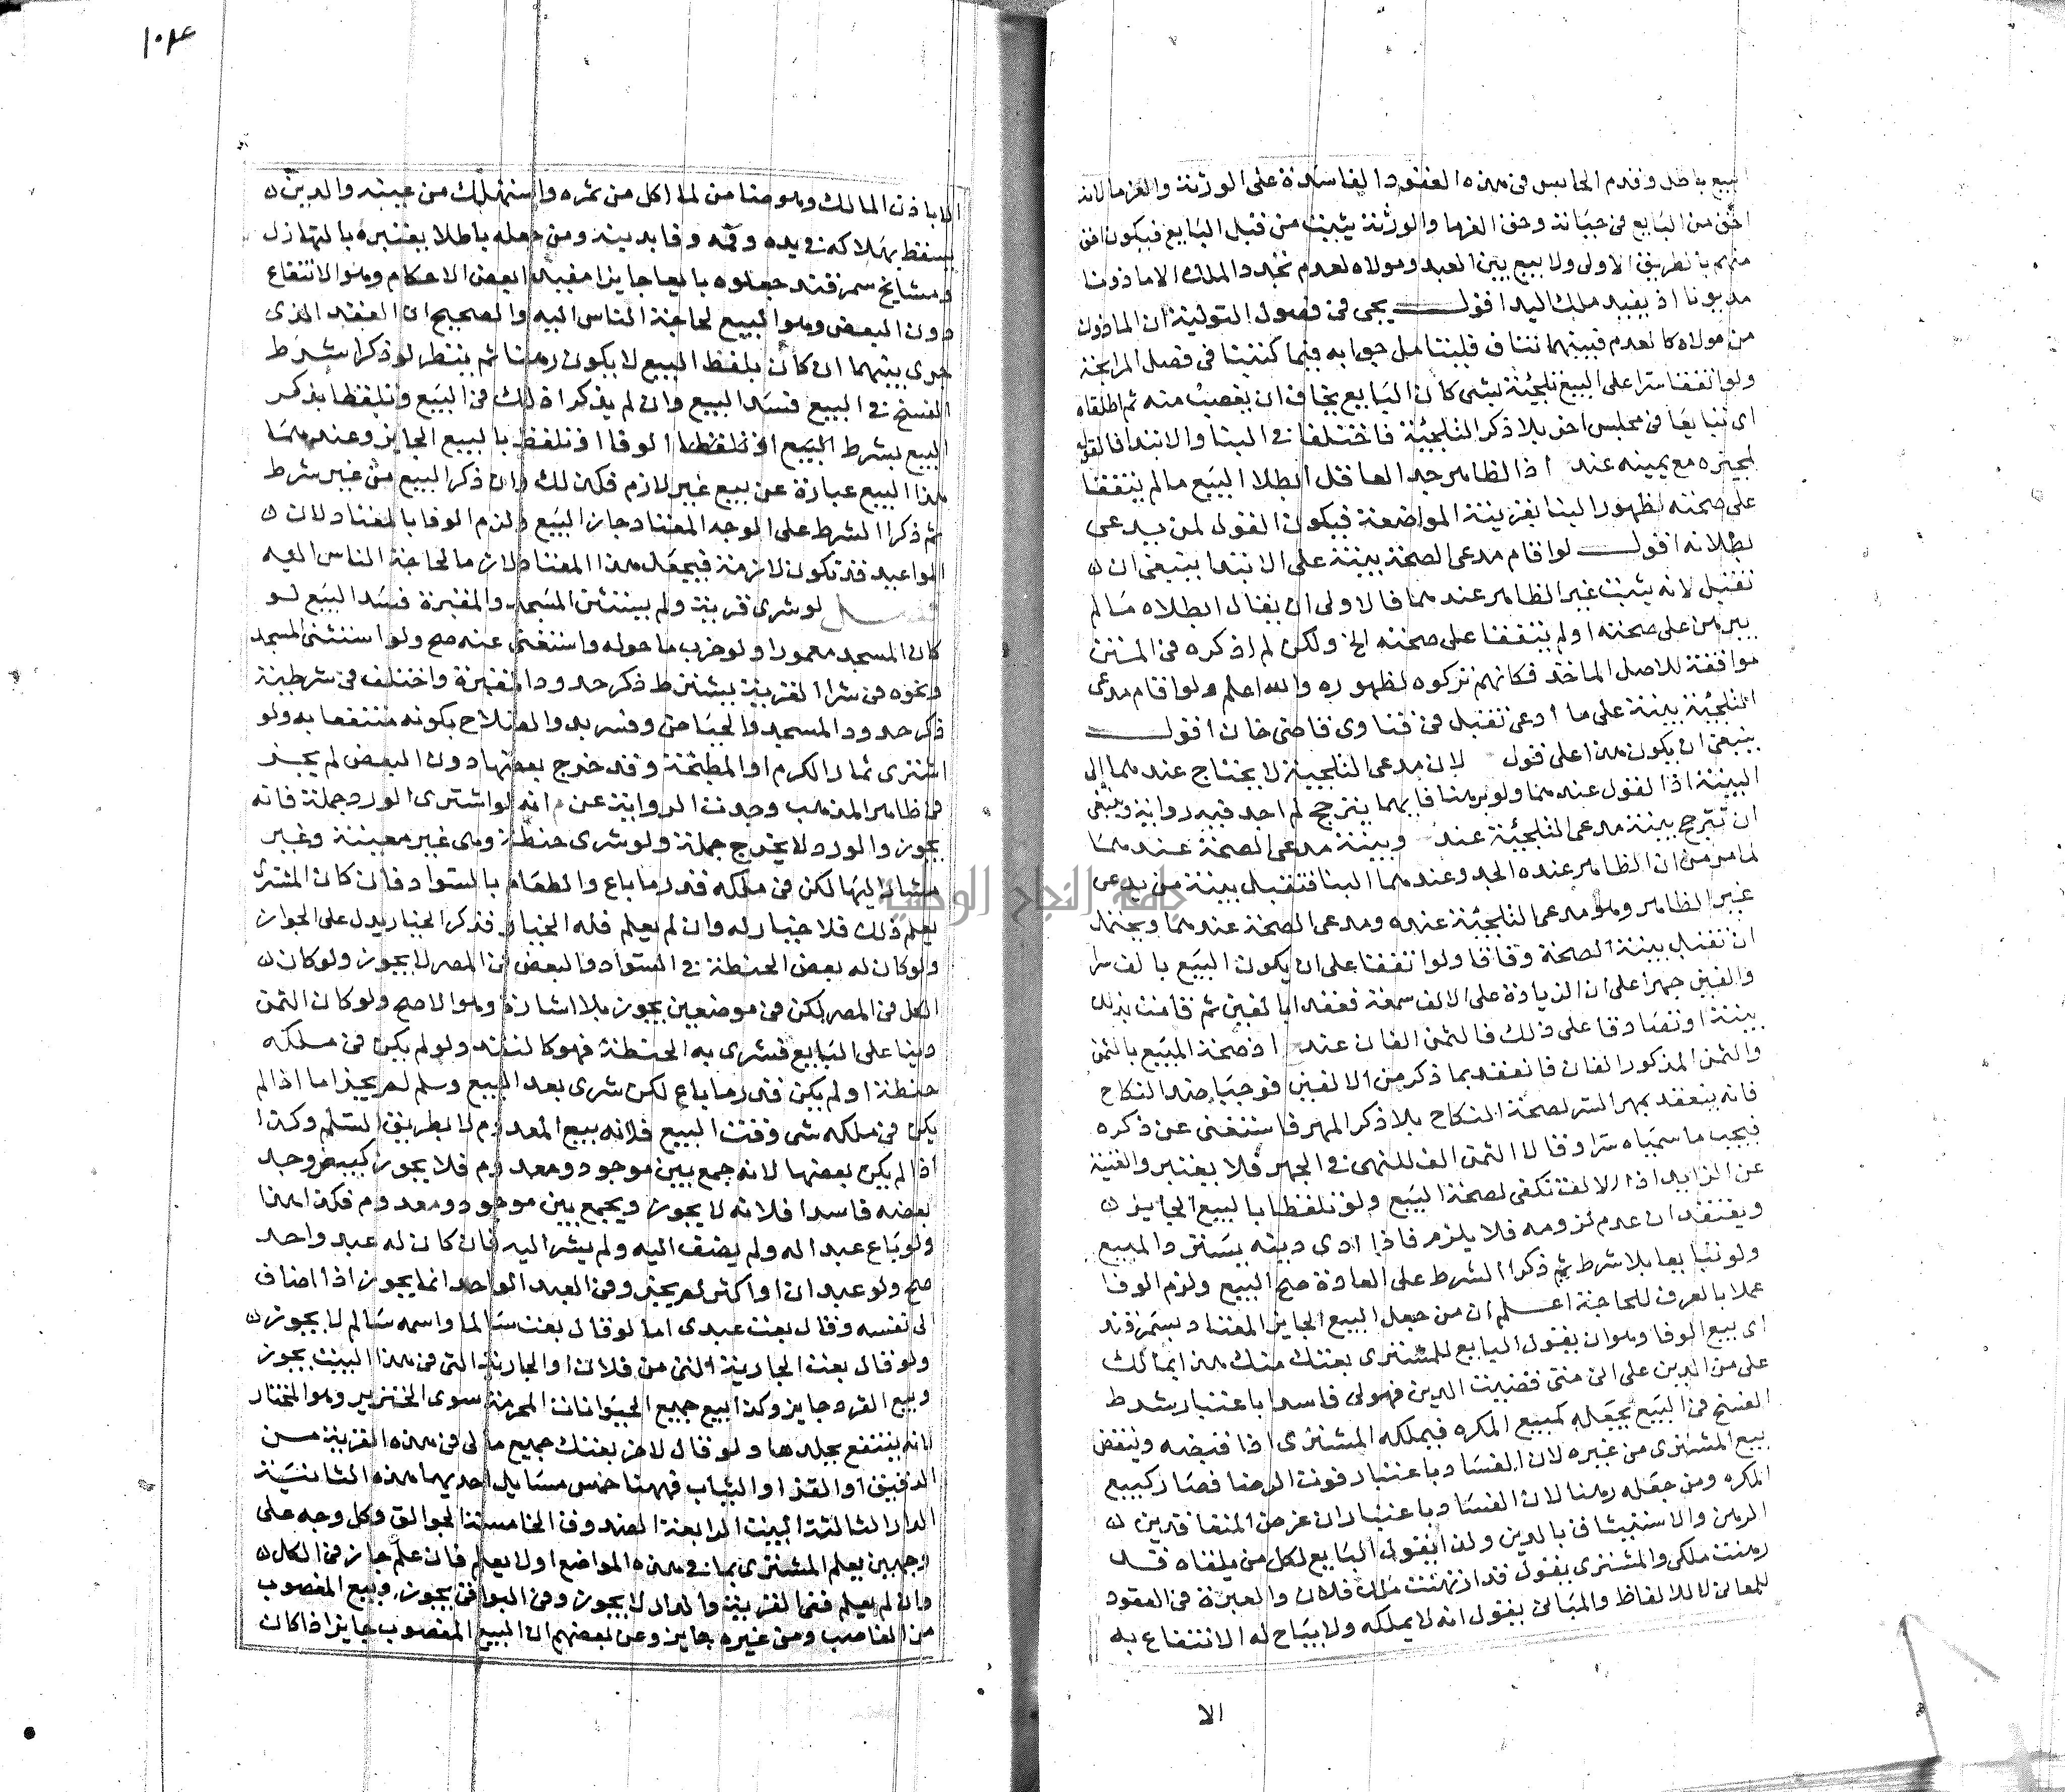 البيع باطل وقدم الحابس في هذه العقود الفاسدة على الورثة والغرما لانه
احق من البايع في حياته وحق الغرما والورثة يثبت من قبل البايع فيكون احق
منهم بالطريق الاولى ولا بيع بين العبد ومولاه لعدم تجدد الملك الا ماذونا
مديونا اذ يفيد ملك اليد اقول يجي في فصول التولية ان الماذون
من مولاه كالعدم فبينهما تناف فليتامل جوابه فيما كتبنا في فصل المرابحة
ولو اتفقا سرا على البيع تلجئة بشي كان البايع يخاف ان يغصب منه ثم اطلقاه
اي تبايعا في مجلس اخر بلا ذكر التلجئة فاختلفا في البنا والابتدا فالقول
لمجيزه مع يمينه عند اذ الظاهر جد العاقل ابطلا البيع ما لم يتفقا
على صحته لظهور البنا بقرينة المواضعة فيكون القول لمن يدعي
بطلانه اقول لو اقام مدعي الصحة بينة على الابتدا ينبغي ان
تقبل لانه يثبت غير الظاهر عندهما فالاولى ان يقال ابطلاه ما لم
يبرهن على صحته او لم يتفقا على صحته الخ ولكن لم اذكره في المتن
موافقة للاصل الماخذ فكانهم تركوه لظهوره والله اعلم ولو اقام مدعي
التلجئة بينة على ما ادعى تقبل في فتاوى قاضي خان اقول
ينبغي ان يكون هذا على قول لان مدعي التلجيئة لا يحتاج عندهما الى
البينة اذ القول عندهما ولو برهنا فايهما يترجح لم اجد فيه رواية وينبغي
ان تترجح بينة مدعي التلجئة عند وبينة مدعي الصحة عندهما
لما مر من ان الظاهر عنده الجد وعندهما البنا فتقبل بينة من يدعي
غير الظاهر وهو مدعي التلجئة عنده ومدعي الصحة عندهما ويحتمل
ان تقبل بينة الصحة وفاقا ولو اتفقا على ان يكون البيع بالف سرا
والفين جهرا على ان الزيادة على الالف سمعة فعقدا بالفين ثم قامت بذلك
بينة او تصادقا على ذلك فالثمن الفان عند اذ صحة المبيع بالثمن
والثمن المذكور الفان فانعقد بما ذكر من الالفين فوجبا ضد النكاح
فانه ينعقد بمهر السر لصحة النكاح بلا ذكر المهر فاستغنى عن ذكره
فيجب ما سمياه سرا وقالا الثمن الف للنهي في الجهر فلا يعتبر والغنية
عن الزايد اذ الالف تكفي لصحة البيع ولو تلفظا بالبيع الجايز
ويعتقدان عدم لزومه فلا يلزم فاذا ادى دينه يسترد المبيع
ولو تبايعا بلا شرط ثم ذكرا الشرط على العادة صح البيع ولزم الوفا
عملا بالعرف للحاجة اعلم ان من جعل البيع الجايز المعتاد بسمرقند
اي بيع الوفا وهو ان يقول البايع للمشتري بعتك منك هذا بمالك
علي من الدين على اني متى قضيت الدين فهو لي فاسدا باعتبار شرط
الفسخ في البيع يجعله كبيع المكره فيملكه المشتري اذا قبضه وينقض
بيع المشتري من غيره لان الفساد باعتبار فوت الرضا فصار كبيع
المكره ومن جعله رهنا لان الفساد باعتبار ان غرض المتعاقدين
الرهن والاستيثاق بالدين ولذا يقول البايع لكل من يلقاه قد
رهنت ملكي والمشتري يقول قد ارتهنت ملك فلان والعبرة في العقود
للمعاني لا للالفاظ والمباني يقول انه لا يملكه ولا يباح له الانتفاع به
الا
١٠٤
الا باذن المالك وهو ضامن لما اكل من ثمره واستهلك من عينه والدين
يسقط بهلاكه في يده وقيمه وفا بدينه ومن جعله باطلا يعتبره بالتهازل
ومشايخ سمرقند جعلوه بايعا جايزا مفيدا لبعض الاحكام وهو الانتفاع
دون البعض وهو البيع لحاجة الناس اليه والصحيح ان العقد الذي
جرى بينهما ان كان بلفظ البيع لا يكون رهنا ثم ينظر لو ذكرا شرط
الفسخ في البيع فسد البيع وان لم يذكرا ذلك في البيع وتلفظا بذكر
البيع بشرط البيع او تلفظا الوفا او تلفظ بالبيع الجايز وعندهما
هذا البيع عبارة عن بيع غير لازم فكذلك وان ذكر البيع من غير شرط
ثم ذكرا الشرط على الوجه المعتاد جاز البيع ولزم الوفا بالمعتاد لان
المواعيد قد تكون لازمة فيجعل هذا المعتاد لازما لحاجة الناس اليه
فصل لو شرى قرية ولم يستثن المسجد والمقبرة فسد البيع لو
كان المسجد معمورا ولو خرب ما حوله واستغنى عنه صح ولو استثنى المسجد
ونحوه في شرا القرية يشترط ذكر حدود المقبرة واختلف في شرطية
ذكر حدود المسجد والحياض وفسر بد والصلاح بكونه منتفعا به ولو
اشترى ثمار الكرم او المطبخة وقد خرج بعضها دون البعض لم يجز
في ظاهر المذهب وجدت الرواية عن م انه لو اشترى الورد جملة فانه
يجوز والورد لا يخرج جملة ولو شرى حنطة وهي غير معينة وغير
مشار اليها لكن في ملكه قدر ما باع والطعام بالسواد فان كان المشتري
يعلم ذلك فلا خيار له وان لم يعلم فله الخيار فذكر الخيار يدل على الجواز
ولو كان له بعض الحنطة في السواد والبعض في المصر لا يجوز ولو كان
الكل في المصر لكن في موضعين يجوز بلا اشارة وهو الاصح ولو كان الثمن
دينا على البايع فشرى به الحنطة فهو كالنقد ولو لم يكن في ملكه
حنطة او لم يكن قدر ما باع لكن شرى بعد البيع وسلم لم يجز اما اذا لم
يكن في ملكه شي وقت البيع فلانه بيع المعدوم لا بطريق السلم وكذا
اذا لم يكن بعضها لانه جمع بين موجود ومعدوم فلا يجوز كبيض وجد
بعضه فاسدا فلانه لا يجوز ويجمع بين موجود ومعدوم فكذا هذا
ولو باع عبدا له ولم يضف اليه ولم يشر اليه فان كان له عبد واحد
صح ولو عبدان او اكثر لم يجز وفي العبد الواحد انما يجوز اذا اضاف
الى نفسه وقال بعت عبدي اما لو قال بعت سالما واسمه سالم لا يجوز
ولو قال بعت الجارية التي من فلان او الجارية التي في هذا البيت يجوز
وبيع القرد جايز وكذا بيع جميع الحيوانات المحرمة سوى الخنزير وهو المختار
لانه ينتفع بجلدها ولو قال لاخر بعتك جميع ما لي في هذه القرية من
الدقيق او القز او الثياب فههنا خمس مسايل احديهما هذه الثانية
الدار الثالثة البيت الرابعة الصندوق الخامسة الجوالق وكل وجه على
وجهين يعلم المشتري بما في هذه المواضع او لا يعلم فان علم جاز في الكل
وان لم يعلم ففي القرية والدار لا يجوز وفي البواقي يجوز وبيع المغصوب
من الغاصب ومن غيره جايز وعن بعضهم ان البيع المغصوب جايز اذا كان
جامعة النجاح الوطنية